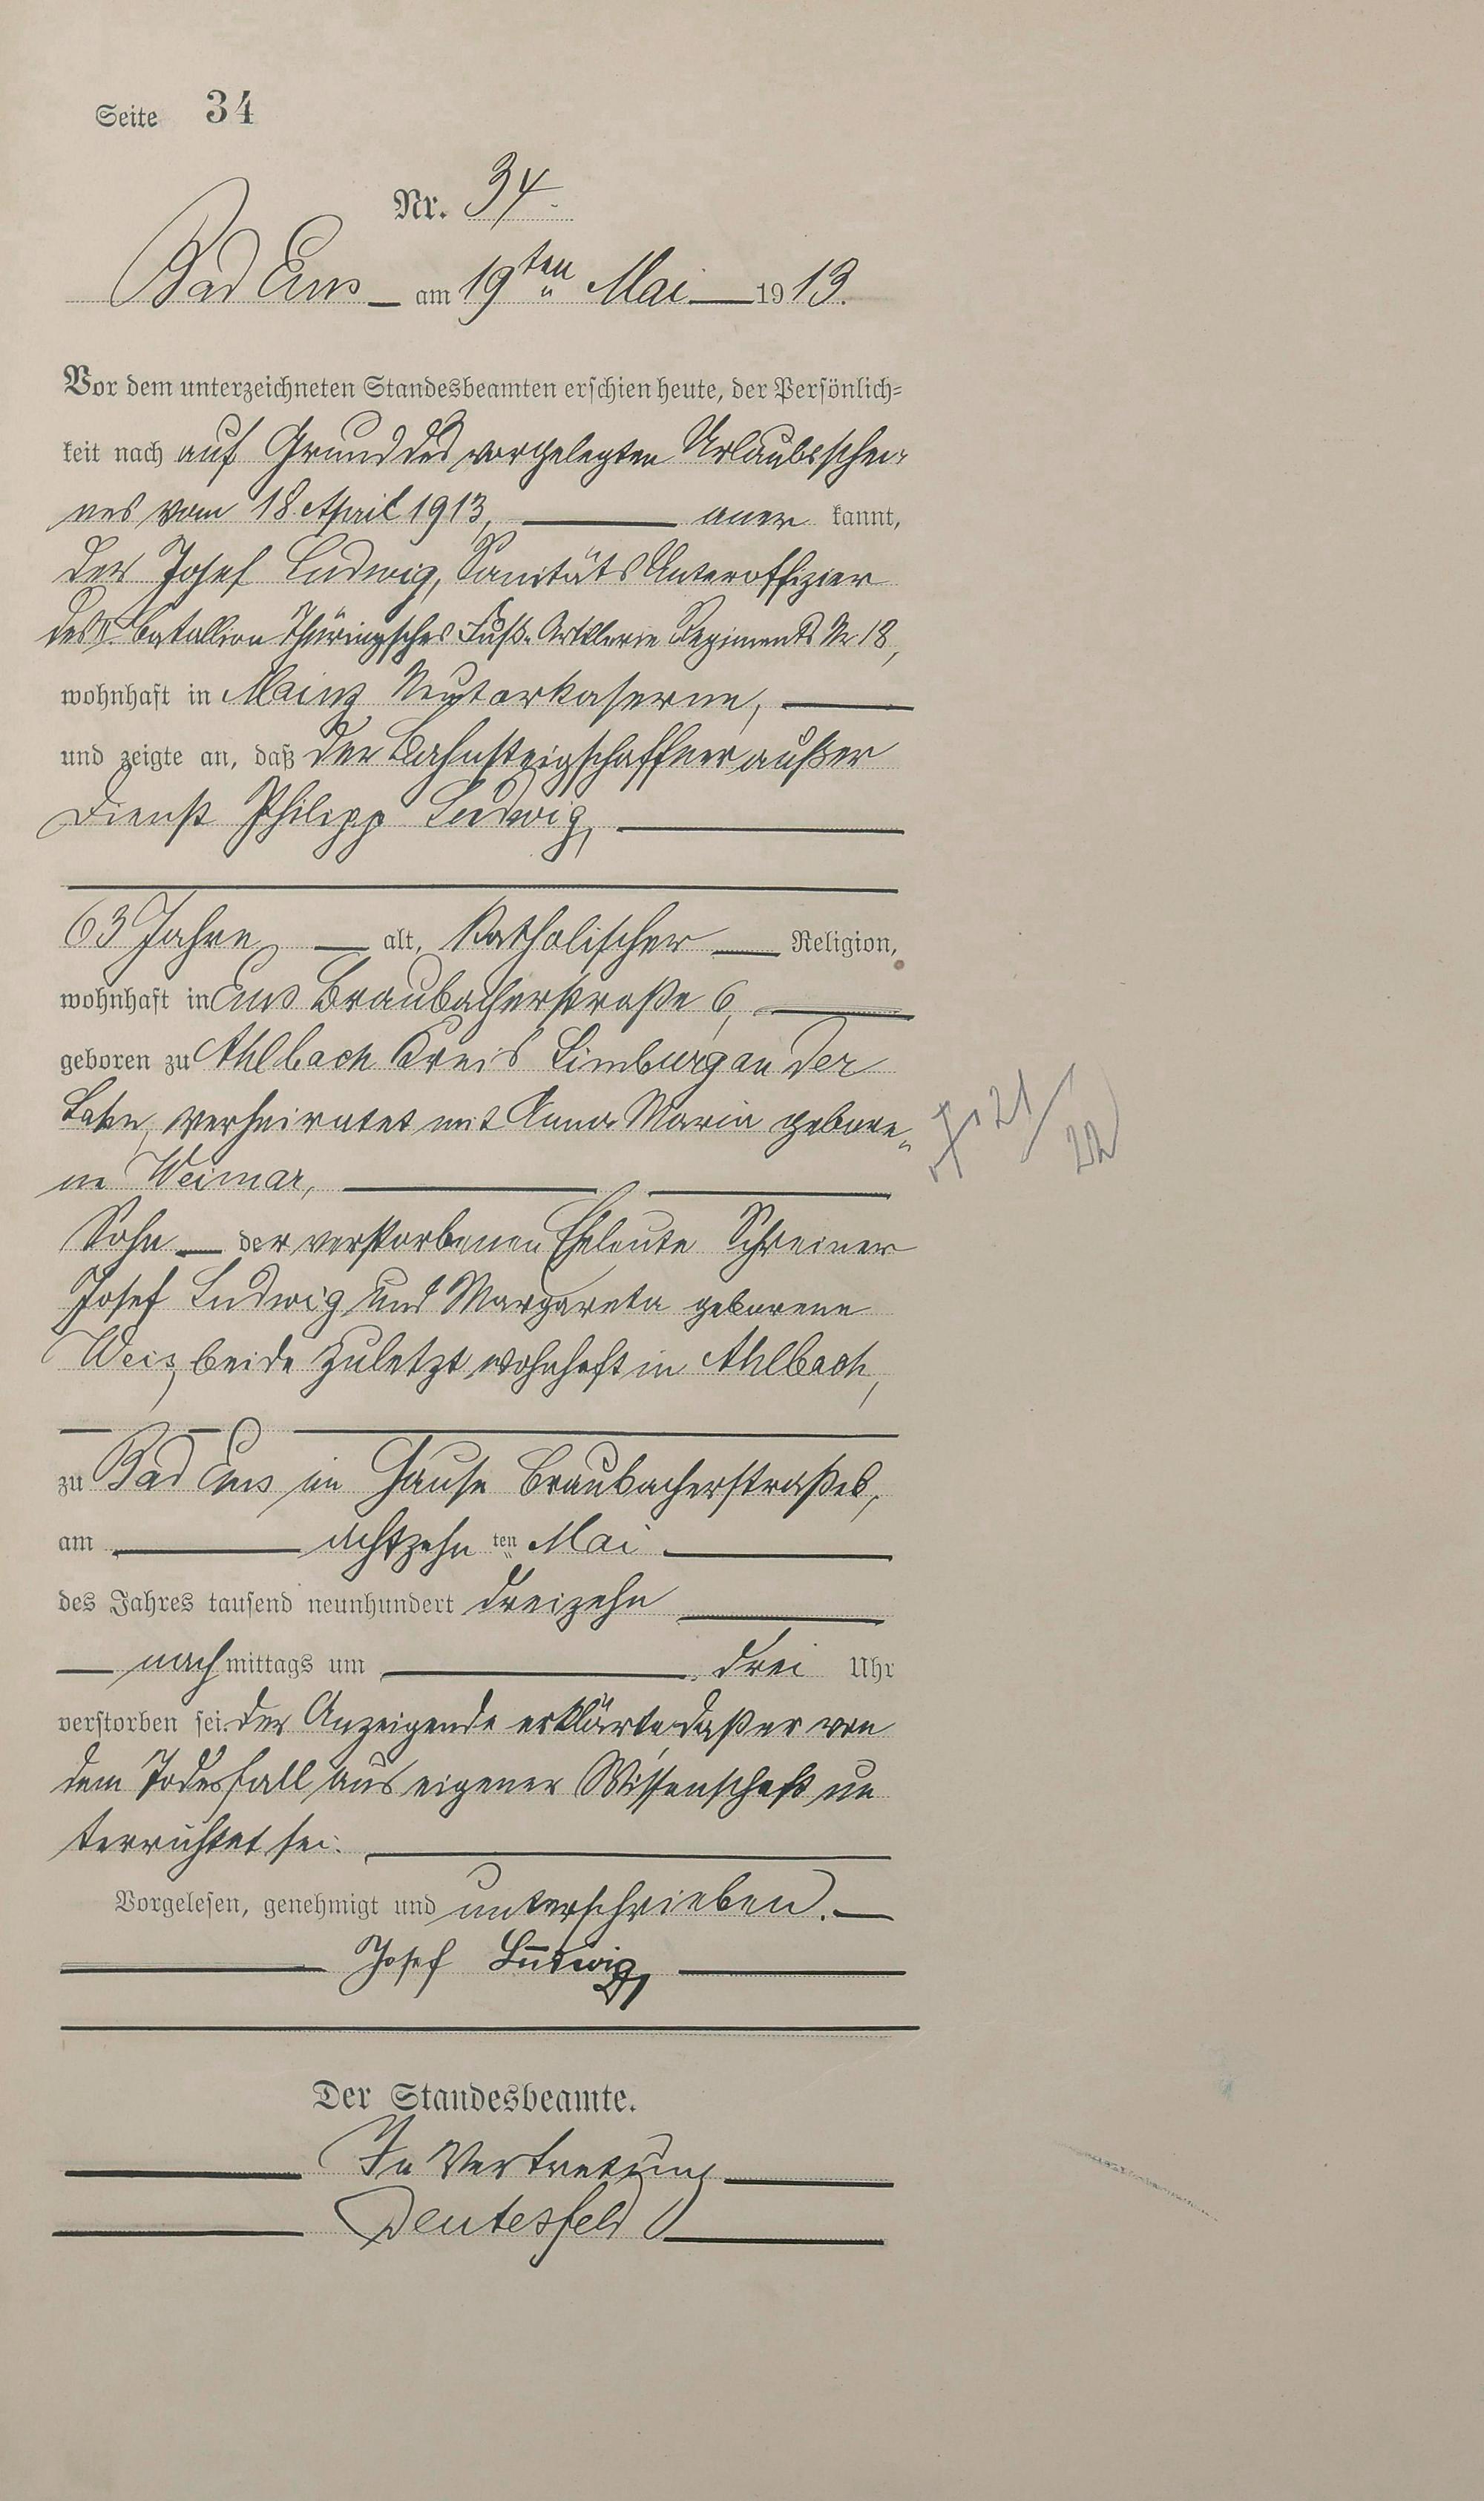 Seite 34
Nr. 34.
Bad Ems am 19ten Mai 1913.
Vor dem unterzeichneten Standesbeamten erschien heute, der Persönlich=
keit nach auf Grund des vorgelegten Urlaubsschei-
nes vom 18. April 1913, aner kannt,
der Josef Ludwig, Sanitäts Unteroffizier
des II. Batallion Thüringsches Fuß-Artillerie Regiments Nr 18,
wohnhaft in Mainz Neutorkaserne,
und zeigte an, daß der Bahnsteigschaffner außer
Dienst Philipp Ludwig,
63 Jahre alt, katholischer Religion,
wohnhaft in Ems Braubacherstraße 6,
geboren zu Ahlbach Kreis Limburg an der
Lahn, verheiratet mit Anna Maria gebore-
ne Weimar,
Sohn der verstorbenen Eheleute Schreiner
Josef Ludwig und Margareta geborene
Weis, beide zuletzt wohnhaft in Ahlbach,
zu Bad Ems im Hause Braubacherstraße 6,
am achtzehn ten Mai
des Jahres tausend neunhundert dreizehn
nachmittags um drei Uhr
verstorben sei. Der Anzeigende erklärte, daß er von
dem Todesfall aus eigener Wissenschaft un
terrichtet sei.
Vorgelesen, genehmigt und unterschrieben.
Josef Ludwig,
Der Standesbeamte.
In Vertretung
Deutesfeld
21/22